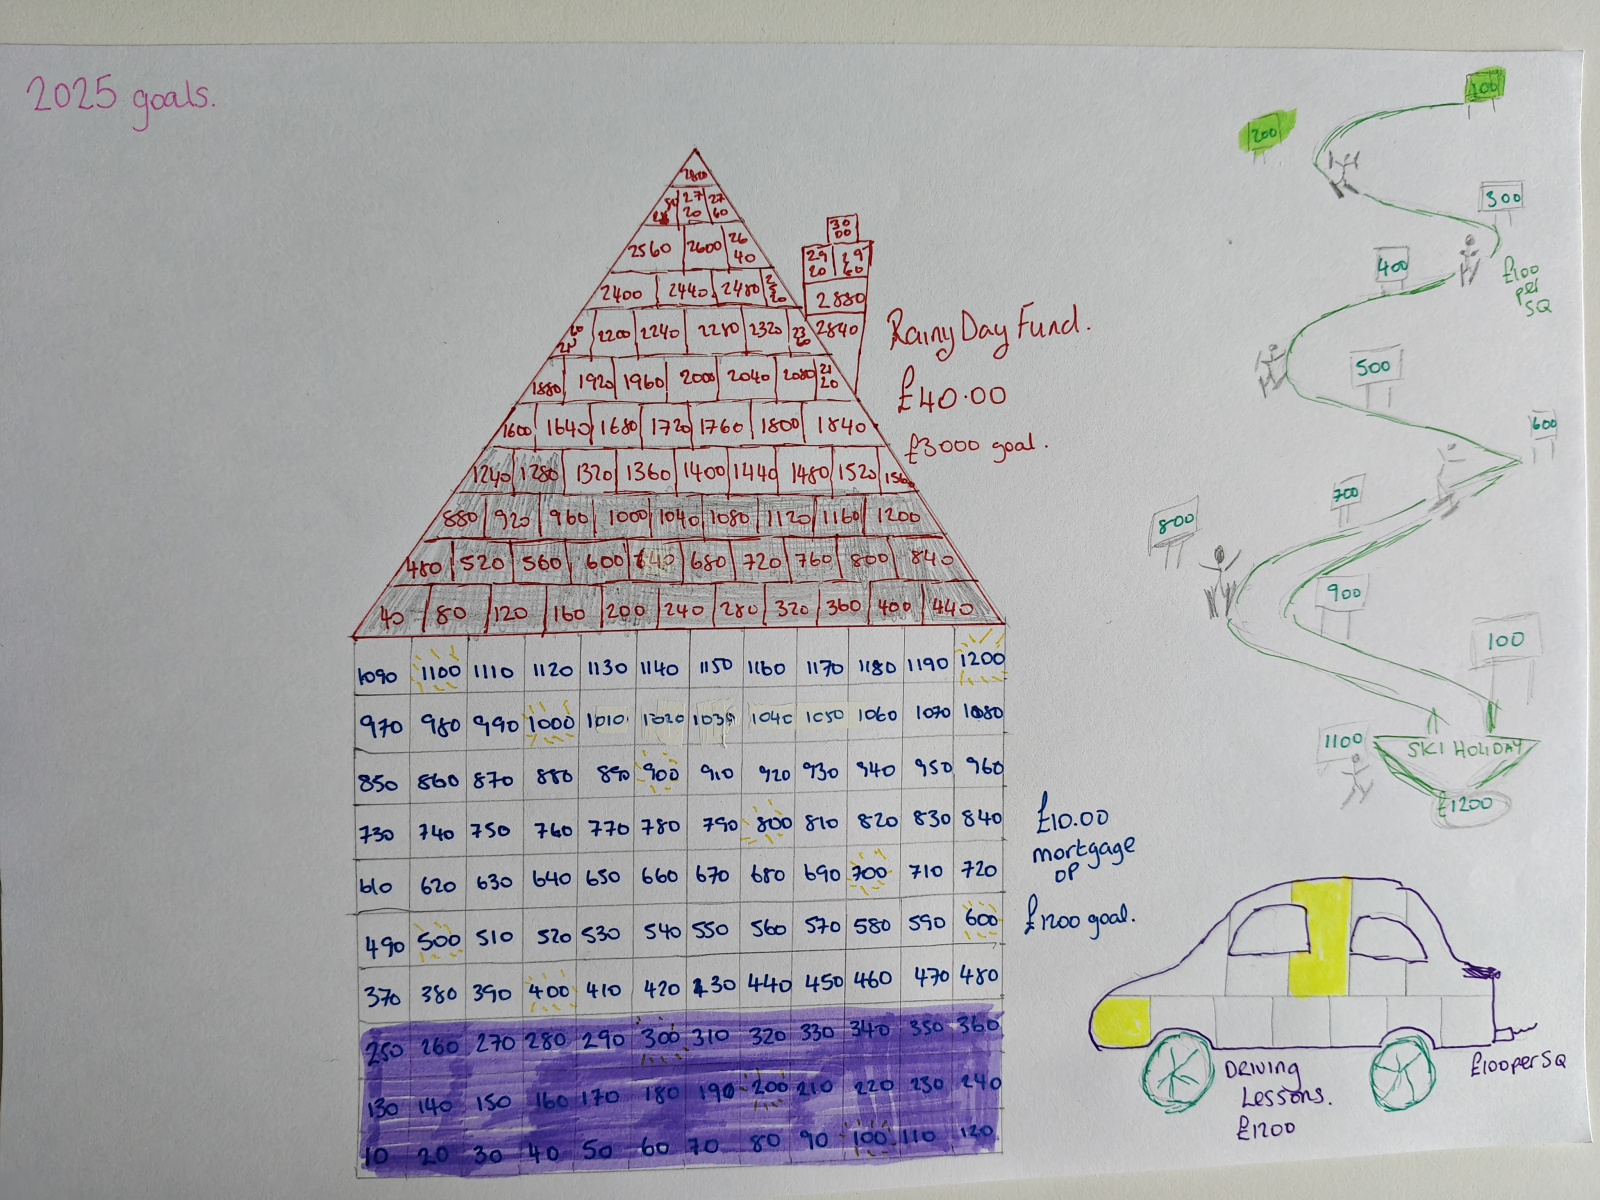 2025 goals.
2800
2720 2760
2560 2600 2640
2400 2440 2480 2520
2200 2240 2280 2320 2360
1880 1920 1960 2000 2040 2080 2120
1600 1640 1680 1720 1760 1800 1840
1240 1280 1320 1360 1400 1440 1480 1520 1560
880 920 960 1000 1040 1080 1120 1160 1200
480 520 560 600 640 680 720 760 800 840
40 80 120 160 200 240 280 320 360 400 440
3000
2920 2960
2880
2840
Rainy Day Fund.
£40.00
£3000 goal.
1090 1100 1110 1120 1130 1140 1150 1160 1170 1180 1190 1200
970 980 990 1000 1010 1020 1030 1040 1050 1060 1070 1080
850 860 870 880 890 900 910 920 930 940 950 960
730 740 750 760 770 780 790 800 810 820 830 840
610 620 630 640 650 660 670 680 690 700 710 720
490 500 510 520 530 540 550 560 570 580 590 600
370 380 390 400 410 420 430 440 450 460 470 480
250 260 270 280 290 300 310 320 330 340 350 360
130 140 150 160 170 180 190 200 210 220 230 240
10 20 30 40 50 60 70 80 90 100 110 120
£10.00
mortgage
OP
£1200 goal.
100
200
300
£100
per
SQ
400
500
600
700
800
900
100
1100
SKI HOLIDAY
£1200
DRIVING
Lessons.
£1200
£100 per SQ